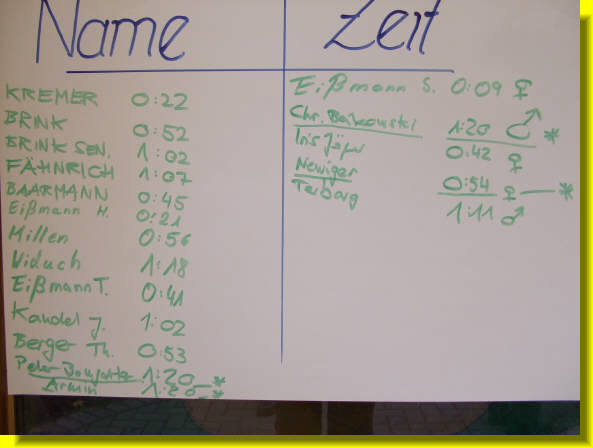 Name Zeit
KREMER 0:22
BRINK 0:52
BRINK SEN. 1:02
FÄHNRICH 1:07
BAARMANN 0:45
Eißmann H. 0:21
Millen 0:56
Viduch 1:18
Eißmann T. 0:41
Kandel J. 1:02
Berger Th. 0:53
Peter 1:20 *
Armin 1:20 *
Eißmann S. 0:09 ♀
Chr. 1:20 ♂ *
Iris Jäger 0:42 ♀
Newiger 0:54 ♀ — *
Terborg 1:11 ♂